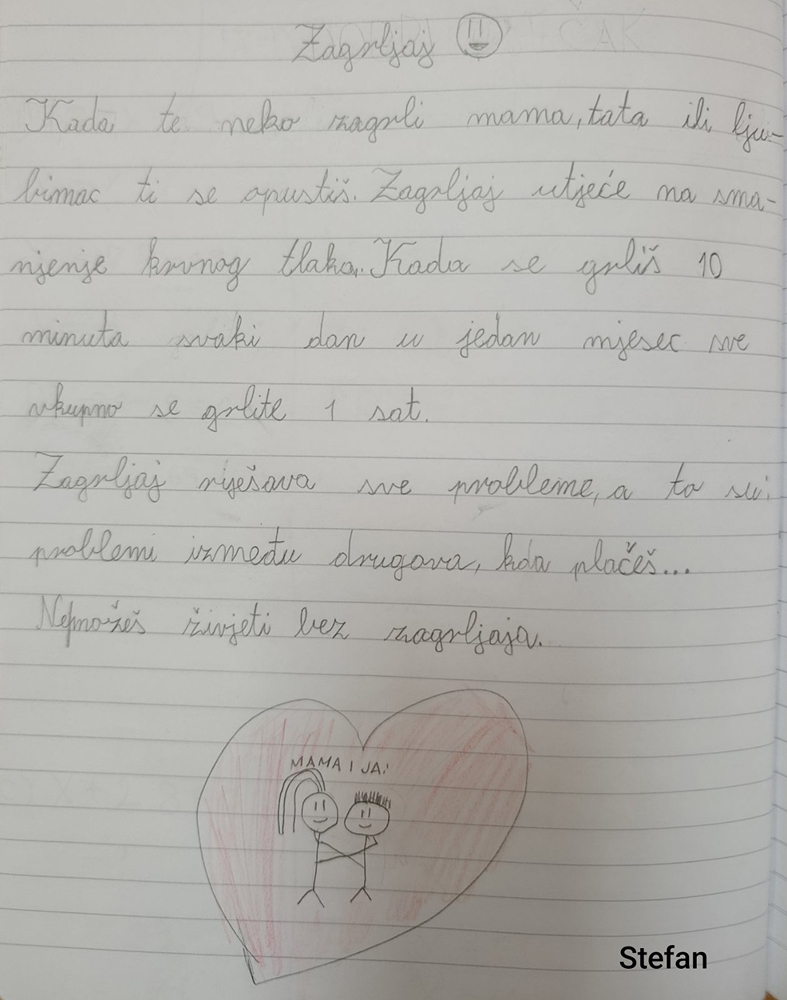 Zagrljaj
Kada te neko zagrli mama, tata ili lju-
bimac ti se opustiš. Zagrljaj utječe na sma-
njenje krvnog tlaka. Kada se grliš 10
minuta svaki dan u jedan mjesec sve
ukupno se grlite 1 sat.
Zagrljaj riješava sve probleme, a to su:
problemi između drugova, kda plačeš...
Nemožeš živjeti bez zagrljaja.
MAMA I JA!
Stefan